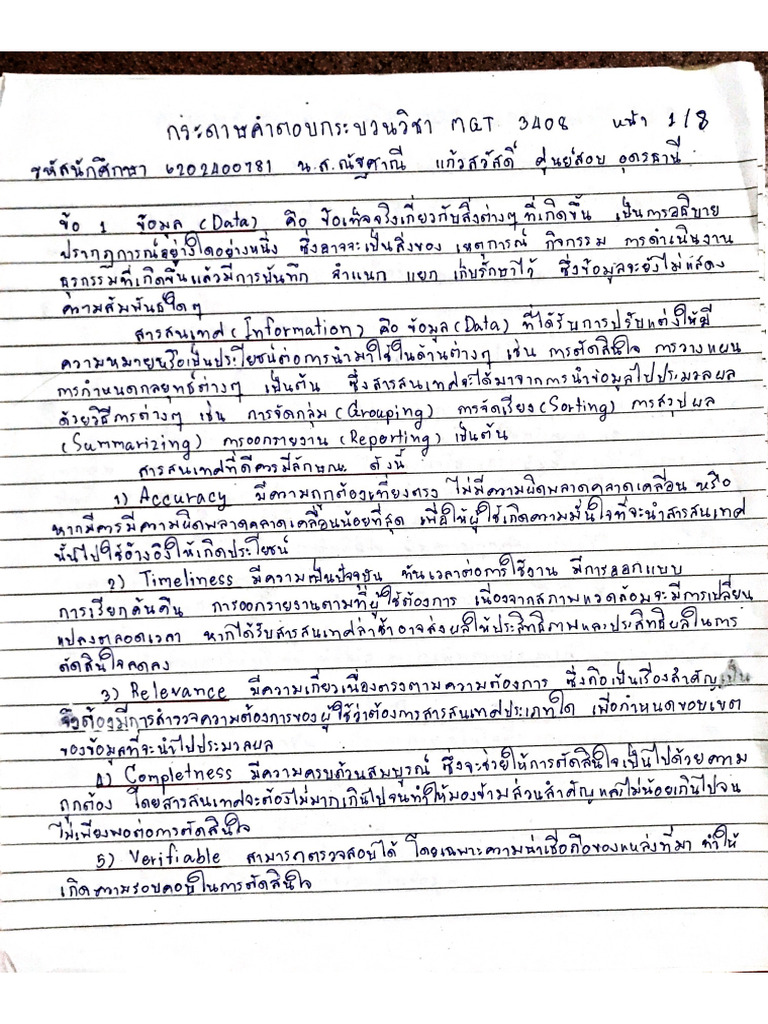 กระดาษคำตอบกระบวนวิชา MGT 3408 หน้า 1/8
รหัสนักศึกษา 6202400781 น.ส.ณัฐศาณี แก้วสวัสดิ์ ศูนย์สอบ อุดรธานี
ข้อ 1 ข้อมูล (Data) คือ ข้อเท็จจริงเกี่ยวกับสิ่งต่างๆ ที่เกิดขึ้น เป็นการอธิบาย
ปรากฏการณ์อย่างใดอย่างหนึ่ง ซึ่งอาจจะเป็นสิ่งของ เหตุการณ์ กิจกรรม การดำเนินงาน
ธุรกรรมที่เกิดขึ้นแล้วมีการบันทึก จำแนก แยก เก็บรักษาไว้ ซึ่งข้อมูลจะยังไม่แสดง
ความสัมพันธ์ใดๆ
สารสนเทศ (Information) คือ ข้อมูล (Data) ที่ได้รับการปรับแต่งให้มี
ความหมายหรือเป็นประโยชน์ต่อการนำมาใช้ในด้านต่างๆ เช่น การตัดสินใจ การวางแผน
การกำหนดกลยุทธ์ต่างๆ เป็นต้น ซึ่งสารสนเทศจะได้มาจากการนำข้อมูลไปประมวลผล
ด้วยวิธีการต่างๆ เช่น การจัดกลุ่ม (Grouping) การจัดเรียง (Sorting) การสรุปผล
(Summarizing) การออกรายงาน (Reporting) เป็นต้น
สารสนเทศที่ดีควรมีลักษณะ ดังนี้
1) Accuracy มีความถูกต้องเที่ยงตรง ไม่มีความผิดพลาดคลาดเคลื่อน หรือ
หากมีควรมีความผิดพลาดคลาดเคลื่อนน้อยที่สุด เพื่อให้ผู้ใช้เกิดความมั่นใจที่จะนำสารสนเทศ
นั้นไปใช้อ้างอิงให้เกิดประโยชน์
2) Timeliness มีความเป็นปัจจุบัน ทันเวลาต่อการใช้งาน มีการออกแบบ
การเรียกค้นคืน การออกรายงานตามที่ผู้ใช้ต้องการ เนื่องจากสภาพแวดล้อมจะมีการเปลี่ยน
แปลงตลอดเวลา หากได้รับสารสนเทศล่าช้าอาจส่งผลให้ประสิทธิภาพและประสิทธิผลในการ
ตัดสินใจลดลง
3) Relevance มีความเกี่ยวเนื่องตรงตามความต้องการ ซึ่งถือเป็นเรื่องสำคัญ
จึงต้องมีการสำรวจความต้องการของผู้ใช้ว่าต้องการสารสนเทศประเภทใด เพื่อกำหนดขอบเขต
ของข้อมูลที่จะนำไปประมวลผล
4) Completness มีความครบถ้วนสมบูรณ์ ซึ่งจะช่วยให้การตัดสินใจเป็นไปด้วยความ
ถูกต้อง โดยสารสนเทศจะต้องไม่มากเกินไปจนทำให้มองข้ามส่วนสำคัญ และไม่น้อยเกินไปจน
ไม่เพียงพอต่อการตัดสินใจ
5) Verifiable สามารถตรวจสอบได้ โดยเฉพาะความน่าเชื่อถือของแหล่งที่มา ทำให้
เกิดความรอบคอบในการตัดสินใจ